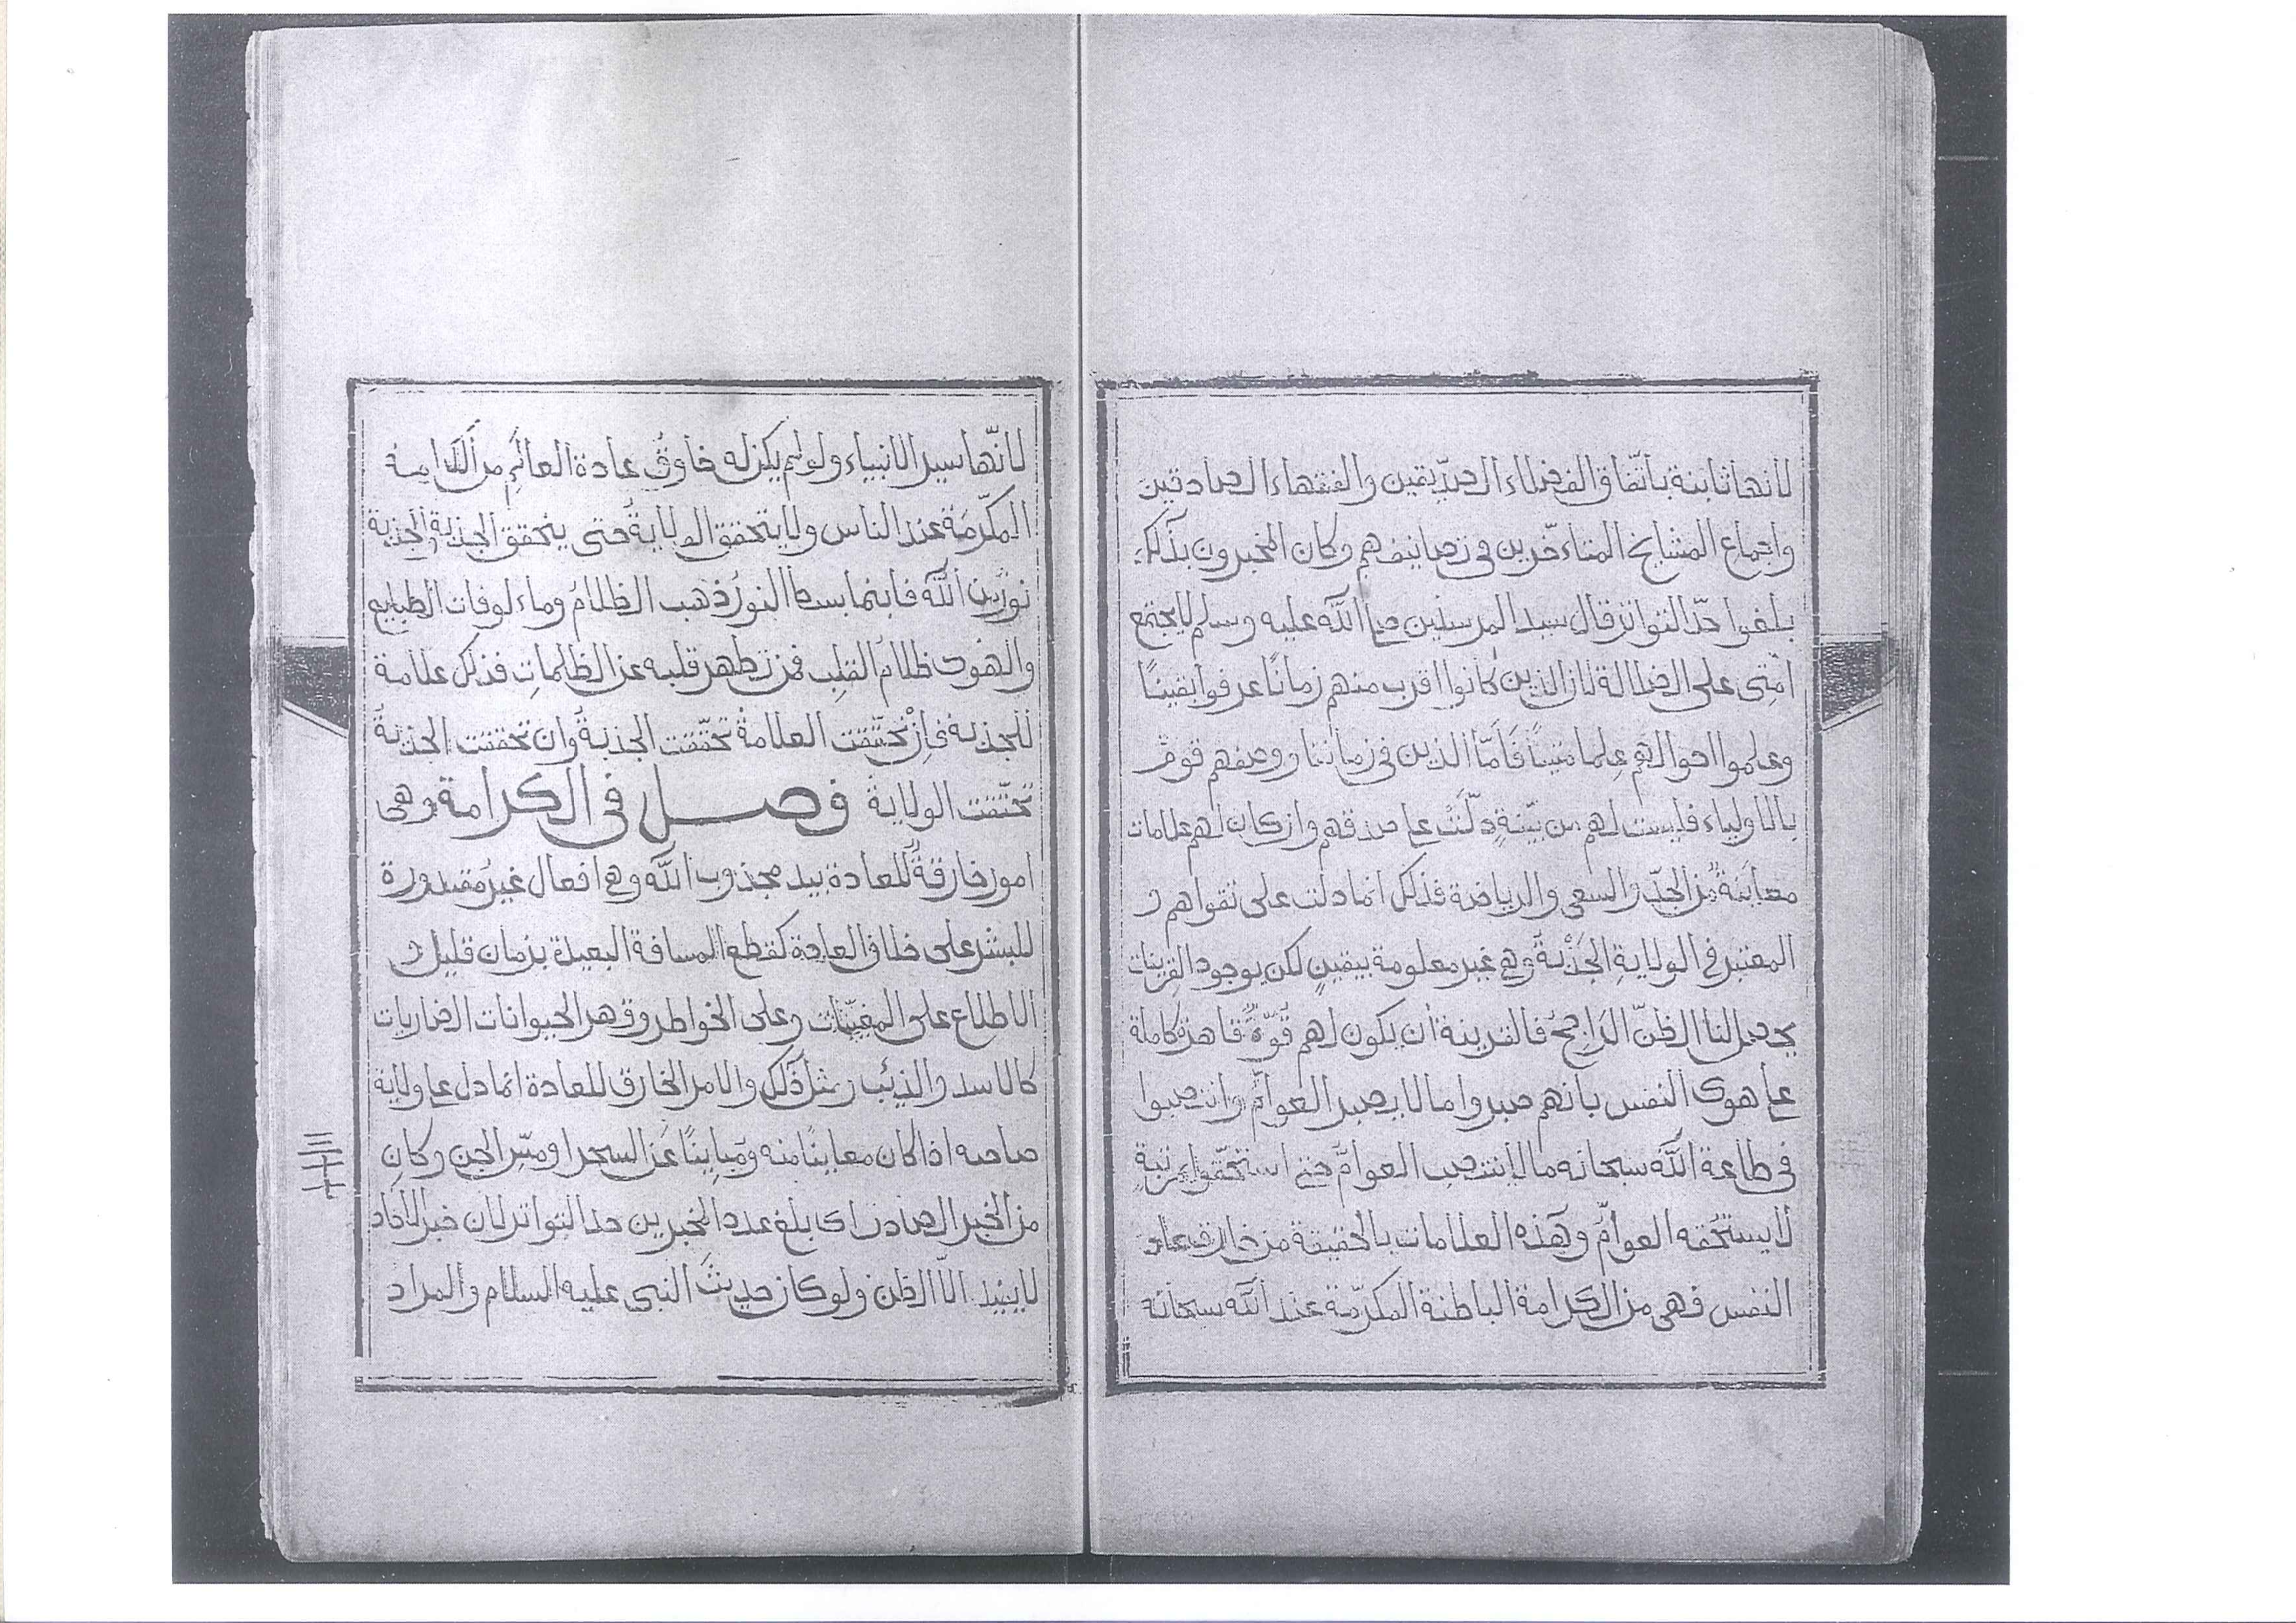 لأنها ثابتة باتّفاق الفضلاء الصدّيقين والفقهاء الصادقين
واجماع المشايخ المتاءخّرين فى تصانيفهم وكان المخبرون بذلك
بلغوا حدّ التواتر قال سيد المرسلين صلى اللّه عليه وسلم لا يجتمع
امّتى على الضلالة لان الذين كانوا اقرب منهم زمانًا عرفوا يقينًا
وعلموا احوالهم علما متينًا فَامّا الذين فى زماننا ووصفهم قوم
بالاولياء فليست لهم من بيّنةٍ دلّت على صدقهم وان كان لهم علامات
معاينةٌ من الجدّ والسعى والرياضة فذلك انما دلت على تقواهم و
المعتبر فى الولايةِ الجَذْبةُ وهى غير معلومة بيقينٍ لكن بوجود القرينات
يحصل لنا الظنّ الرّاجحُ فالقرينة أن يكون لهم قوّةٌ قاهرة كاملة
على هوى النفس بانهم صبروا ما لا يصبر العوامّ وانتصبوا
فى طاعة اللّه سبحانه ما لا ينتصب العوامّ حتى استحقّوا مرتبةٍ
لا يستحقه العوامّ وهذه العلامات بالحقيقة من خارق عادة
النفس فهى من الكرامة الباطنة المكرّمة عند اللّه سبحانه
لانّها سير الانبياء ولو لم يكن له خاوق عادة العالَمِ من الكرامة
المكرّمة عند الناس ولا يتحقق الولايةُ حتى يتحقق الجذبة والجذبة
نورٌ من اللّه فاينما سطا النورُ ذهب الظلامُ وماءلوفات الطبايع
والهوى ظلامُ القلبِ فمن تطهر قلبه عن الظلماتِ فذلك علامة
للجذبة فاِنْ تحقّقت العلامةُ تحقّقت الجذبةُ وان تحققت الجذبةُ
تحقّقت الولاية فصل فى الكرامة وهى
امور خارقةٌ للعادة بيد مجذوب اللّه وهى افعال غيرُ مقدورة
للبشر على خلاف العادة كقطع المسافة البعيدة بزمان قليل و
الاطلاع على المغيّبات وعلى الخواطر وقهر الحيوانات الضاريات
كالاسد والذئب ومثل ذلك والامر الخارق للعادة انما دل على ولاية
صاحبه اذا كان معاينًا منه ومباينًا عن السحر او مسّ الجن وكان
من الخبر الصادق اى بلغ عدد المخبرين حد التواتر لان خبر الاحاد
لا يفيد الّا الظن ولو كان حديثَ النبى عليه السلام والمراد